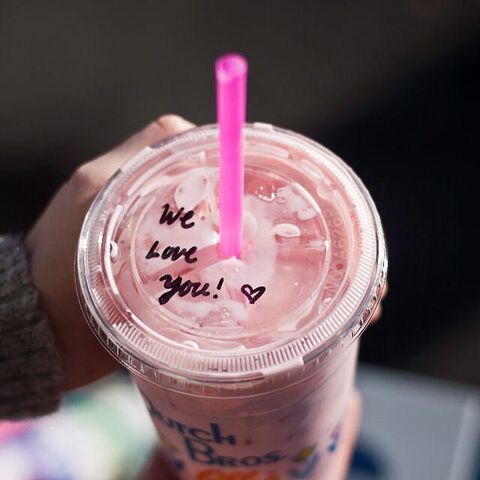 We
Love
You! ♡
Dutch
Bros.